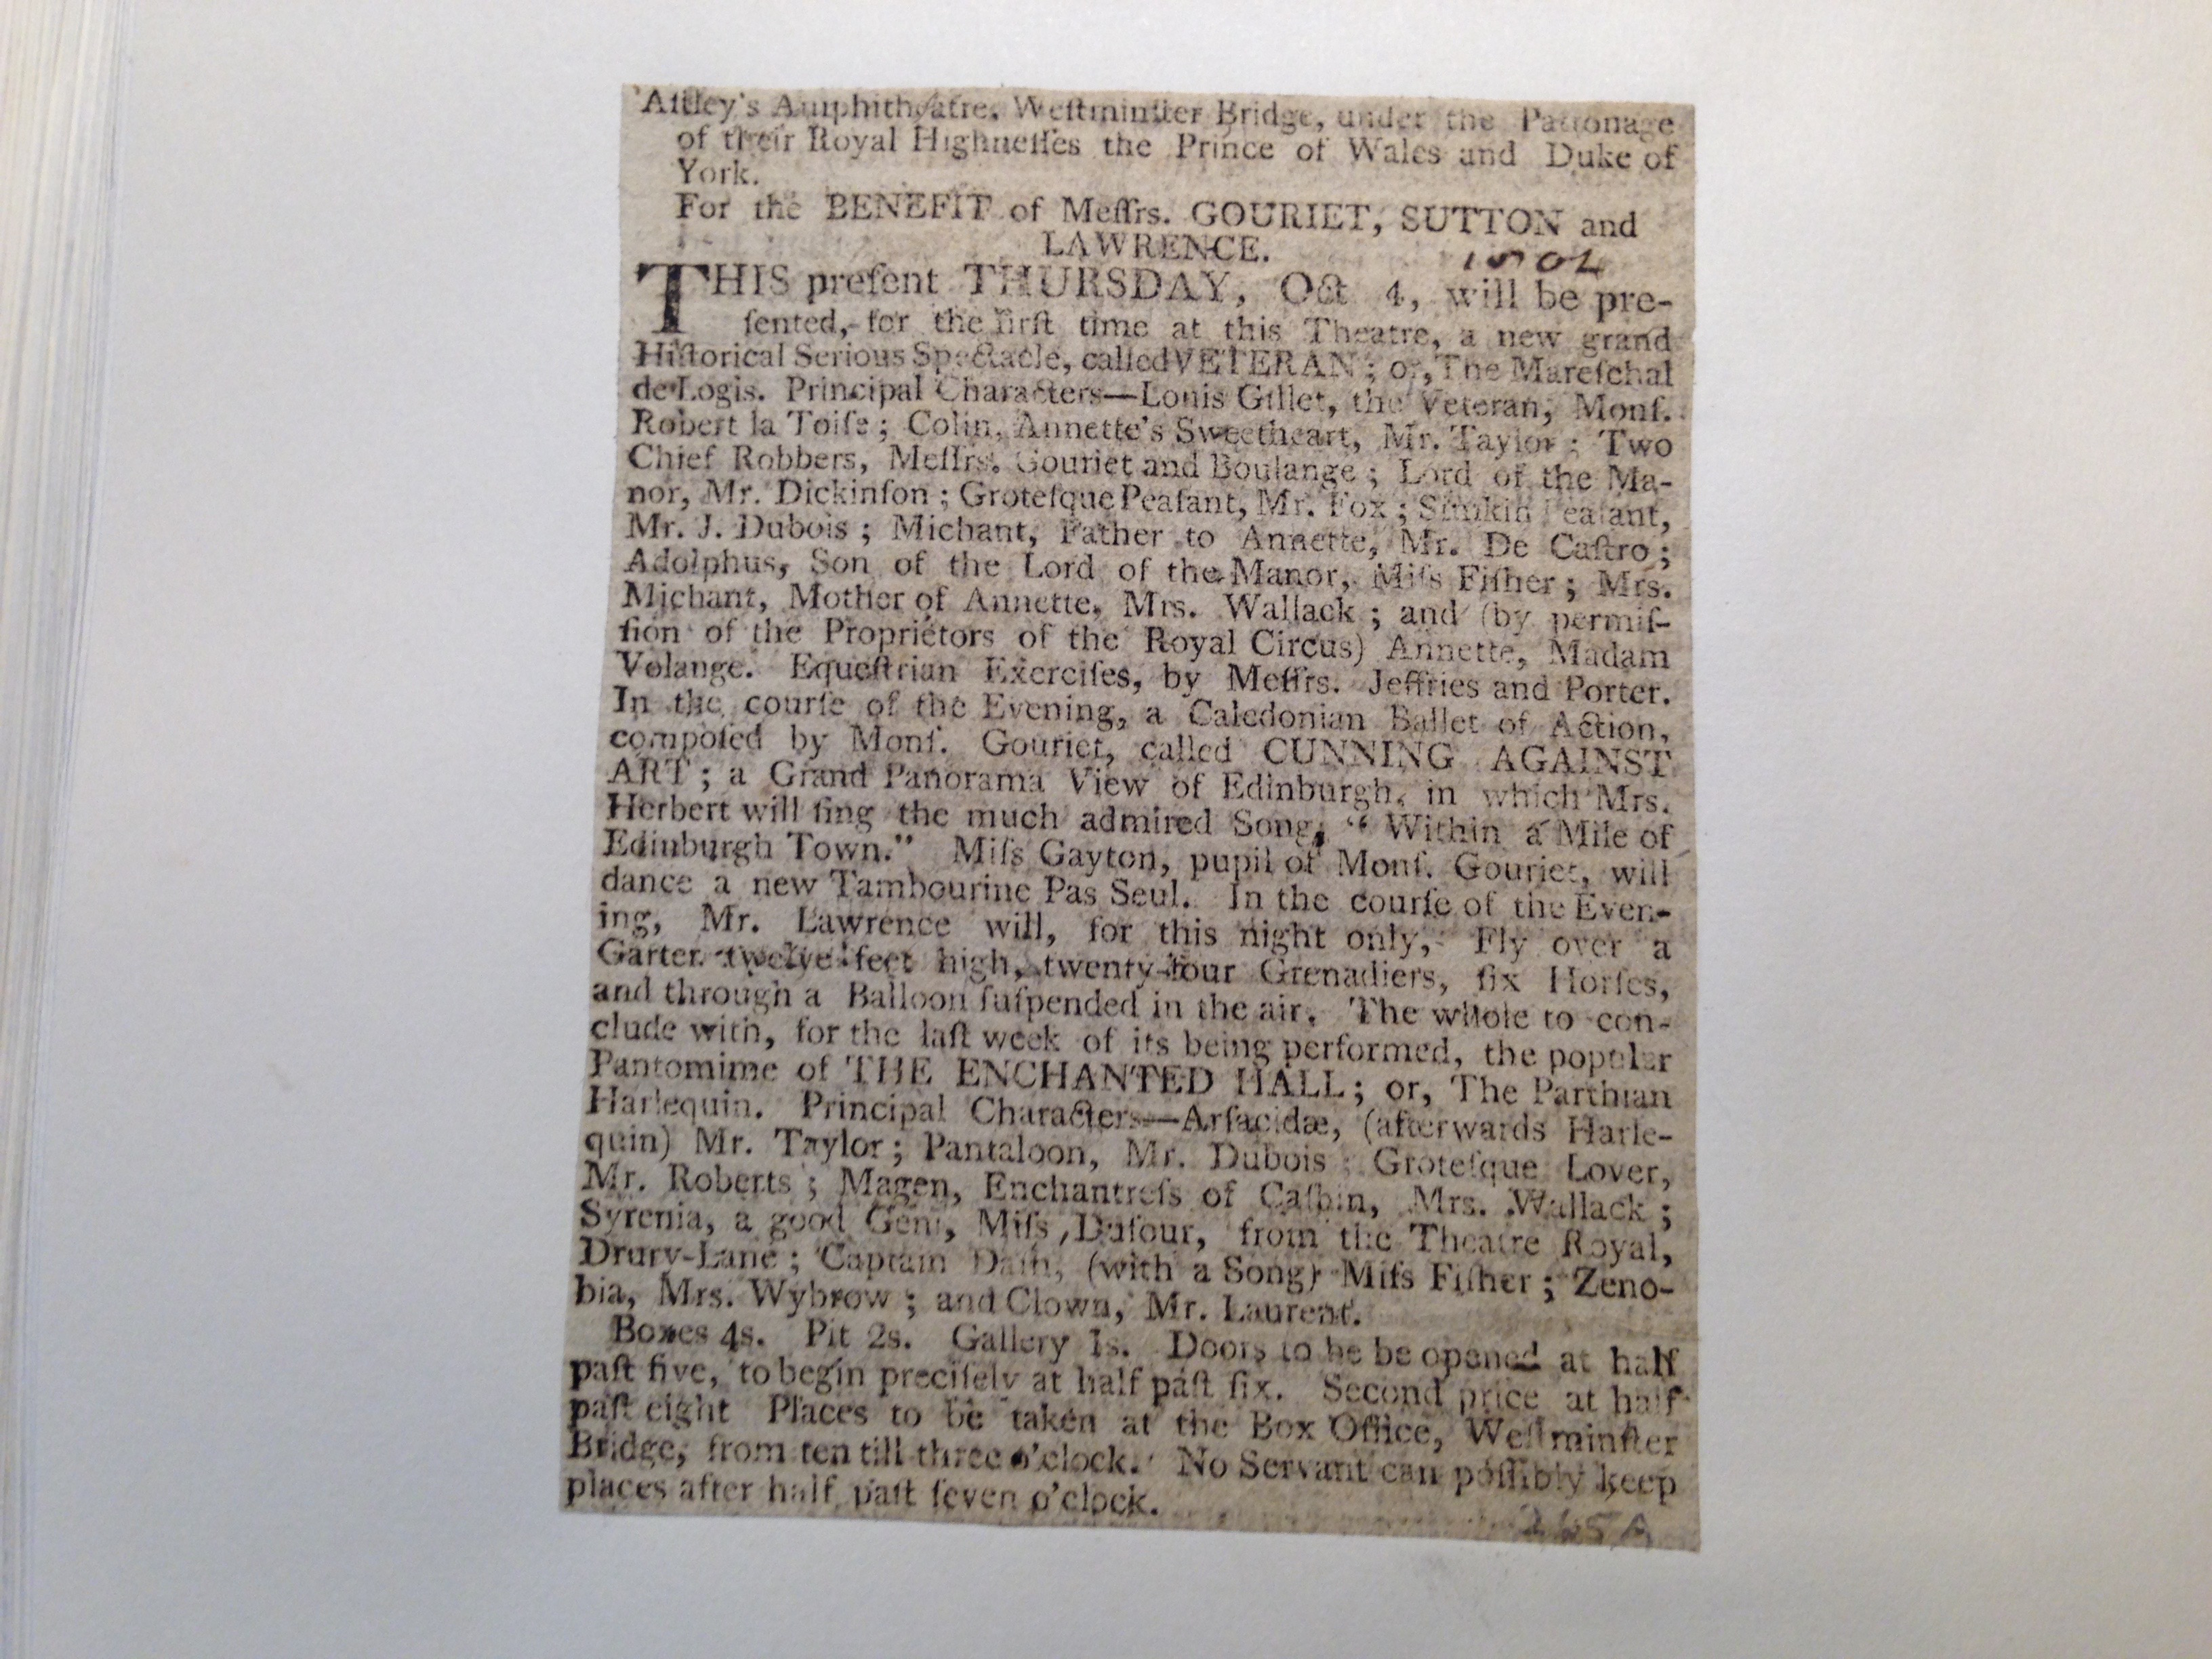 Aſtley's Amphitheatre, Weſtminſter Bridge, under the Patronage
of their Royal Highneſſes the Prince of Wales and Duke of
York.
For the BENEFIT of Meſſrs. GOURIET, SUTTON and
LAWRENCE.
THIS preſent THURSDAY, Oct 4, will be pre-
ſented, for the firſt time at this Theatre, a new grand
Hiſtorical Serious Spectacle, called VETERAN; or, The Mareſchal
de Logis. Principal Characters—Louis Gillet, the Veteran, Monſ.
Robert la Toiſe; Colin, Annette's Sweetheart, Mr. Taylor; Two
Chief Robbers, Meſſrs. Gouriet and Boulange; Lord of the Ma-
nor, Mr. Dickinſon; Groteſque Peaſant, Mr. Fox; Simkin Peaſant,
Mr. J. Dubois; Michant, Father to Annette, Mr. De Caſtro;
Adolphus, Son of the Lord of the Manor, Miſs Fiſher; Mrs.
Michant, Mother of Annette, Mrs. Wallack; and (by permiſ-
ſion of the Proprietors of the Royal Circus) Annette, Madam
Volange. Equeſtrian Exerciſes, by Meſſrs. Jeffries and Porter.
In the courſe of the Evening, a Caledonian Ballet of Action,
compoſed by Monſ. Gouriet, called CUNNING AGAINST
ART; a Grand Panorama View of Edinburgh, in which Mrs.
Herbert will ſing the much admired Song, "Within a Mile of
Edinburgh Town." Miſs Gayton, pupil of Monſ. Gouriet, will
dance a new Tambourine Pas Seul. In the courſe of the Even-
ing, Mr. Lawrence will, for this night only, Fly over a
Garter twelve feet high, twenty-four Grenadiers, ſix Horſes,
and through a Balloon ſuſpended in the air. The whole to con-
clude with, for the laſt week of its being performed, the popular
Pantomime of THE ENCHANTED HALL; or, The Parthian
Harlequin. Principal Characters—Arſacidæ, (afterwards Harle-
quin) Mr. Taylor; Pantaloon, Mr. Dubois; Groteſque Lover,
Mr. Roberts; Magen, Enchantreſs of Caſbin, Mrs. Wallack;
Syrenia, a good Geni, Miſs Dufour, from the Theatre Royal,
Drury-Lane; Captain Daſh, (with a Song) Miſs Fiſher; Zeno-
bia, Mrs. Wybrow; and Clown, Mr. Laurent.
Boxes 4s. Pit 2s. Gallery 1s. Doors to be be opened at half
paſt five, to begin preciſely at half paſt ſix. Second price at half
paſt eight Places to be taken at the Box Office, Weſtminſter
Bridge, from ten till three o'clock. No Servant can poſſibly keep
places after half paſt ſeven o'clock.